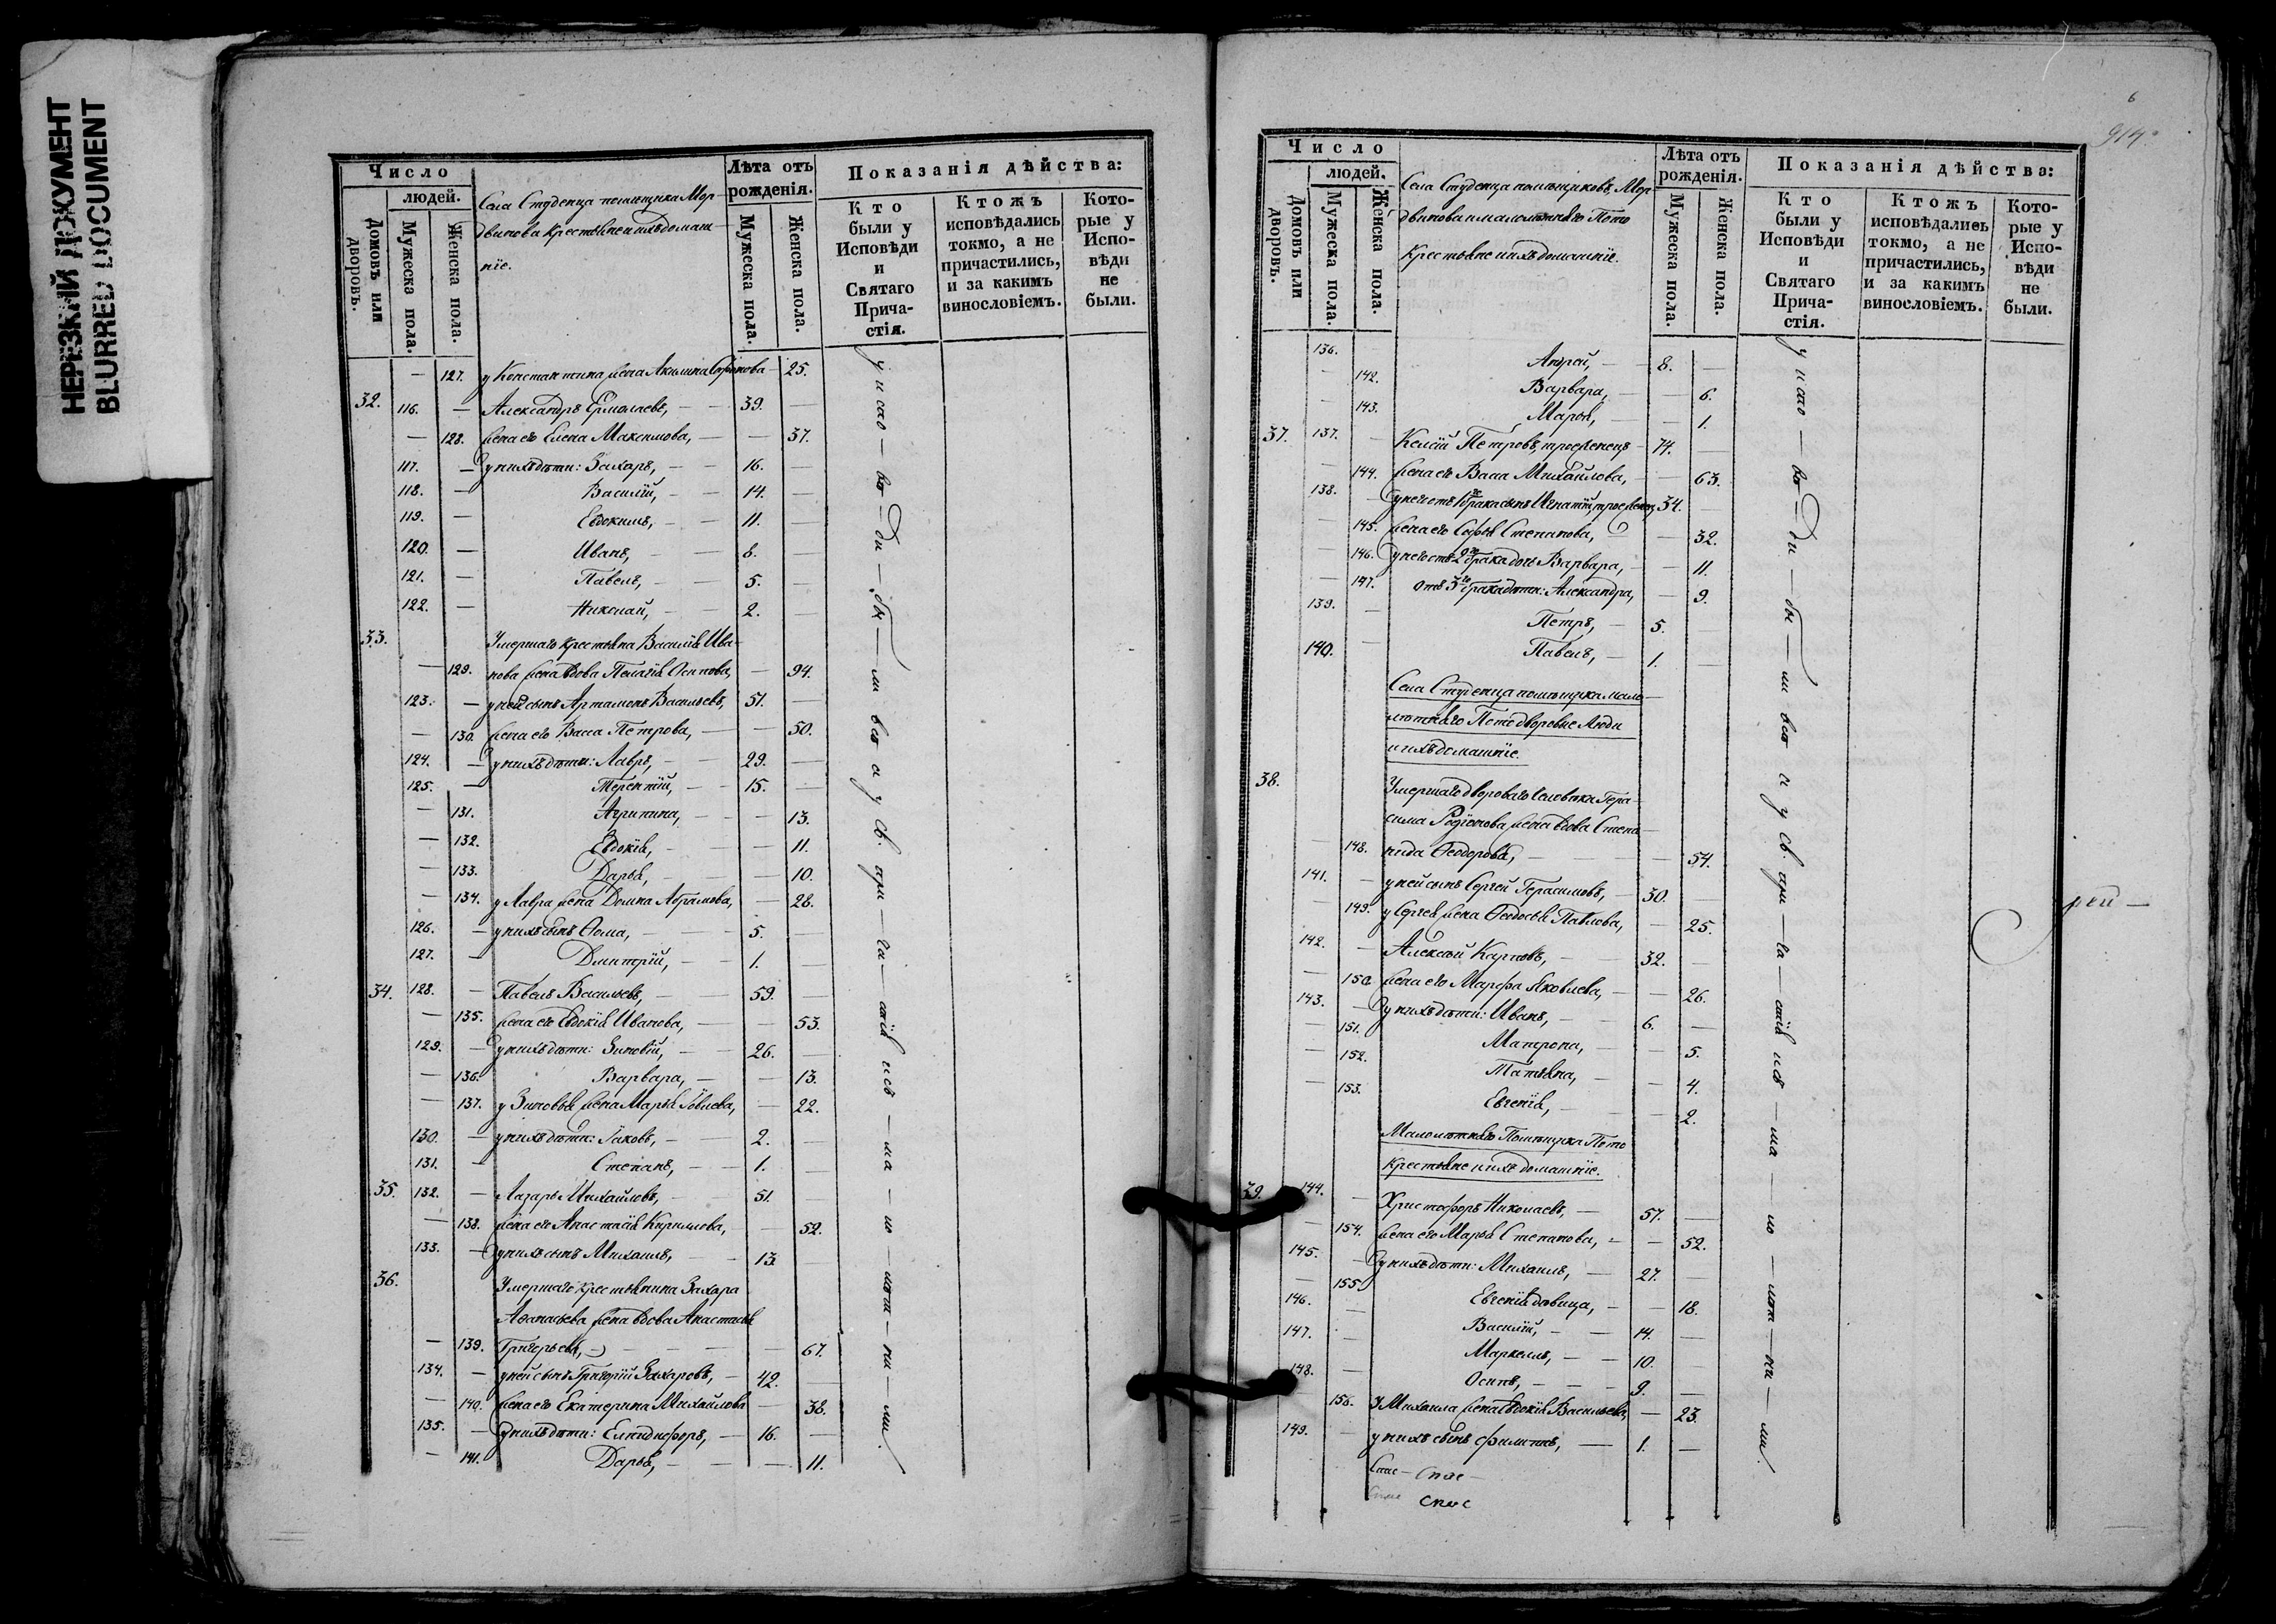 НЕРЕЗКИЙ ДОКУМЕНТ
BLURRED DOCUMENT
Число
людей.
Домовъ или дворовъ.
Мужеска пола.
Женска пола.
Села Студенца помѣщика Мор-
двинова Крестьяне и ихъ домаш-
ніе.
Лѣта отъ рожденія.
Мужеска пола.
Женска пола.
Показанія дѣйства:
Кто были у Исповѣди и Святаго Прича-стія.
Ктожъ исповѣдались токмо, а не причастились, и за какимъ винословіемъ.
Кото-рые у Испо-вѣди не были.
— 127. у Константина жена Акилина — 25.
32. 116. — Александръ Ермолаевъ, — 39. —
— 128. жена его Елена Максимова, — — 37.
117. — у нихъ дѣти: Захаръ, — 16. —
118. — Василій, — 14. —
119. — Евдокимъ, — 11. —
120. — Иванъ, — 8. —
121. — Павелъ, — 5. —
122. — Николай, — 2. —
33. Умершаго крестьяна Василія Ива-
— 129. нова жена вдова Пелагія Осипова, — 94.
123. — у ней сынъ Артамонъ Васильевъ, 51. —
— 130. жена его Васса Петрова, — — 50.
124. — у нихъ дѣти: Лавръ, — 29. —
125. — Терентій, — 15. —
— 131. Агрипина, — — 13.
— 132. Евдокія, — — 11.
— 133. Дарья, — — 10.
— 134. у Лавра жена Домна Абрамова, — 28.
126. — у нихъ сынъ Ѳома, — 5. —
127. — Дмитрій, — 1. —
34. 128. — Павелъ Васильевъ, — 59. —
— 135. жена его Евдокія Иванова, — — 53.
129. — у нихъ дѣти: Зиновій, — 26. —
— 136. Варвара, — — 13.
— 137. у Зиновья жена Марья Іовлева, — 22.
130. — у нихъ дѣти: Іаковъ, — 2. —
131. — Степанъ, — 1. —
35. 132. — Лазарь Михайловъ, — 51. —
— 138. жена его Анастасія Кирилова, — 52.
133. — у нихъ сынъ Михаилъ, — 13. —
36. Умершаго крестьянина Захара
Аѳанасьева жена вдова Анастасья
— 139. Григорьева, — — 67.
134. — у ней сынъ Григорій Захаровъ, — 42. —
— 140. жена его Екатерина Михайлова — 38.
135. — у нихъ дѣти: Елпидифоръ, — 16. —
— 141. Дарья, — — 11.
6
914
Число
людей.
Домовъ или дворовъ.
Мужеска пола.
Женска пола.
Села Студенца помѣщиковъ Мор-
двинова и малолѣтнаго Пото
Крестьяне и ихъ домашніе.
Лѣта отъ рожденія.
Мужеска пола.
Женска пола.
Показанія дѣйства:
Кто были у Исповѣди и Святаго Прича-стія.
Ктожъ исповѣдались токмо, а не причастились, и за какимъ винословіемъ.
Кото-рые у Испо-вѣди не были.
136. Андрей, — 8. —
— 142. Варвара, — — 6.
— 143. Марья, — — 1.
37. 137. — Петровъ, 74. —
— 144. жена его Васса Михайлова, — — 63.
138. — у него отъ 1го брака сынъ Игнатій, 34. —
— 145. жена его Софья Степанова, — 32.
146. у него отъ 2го брака дочь Варвара, — — 11.
— 147. отъ 3го брака дѣти: Александра, — 9.
139. — Петръ, — 5. —
140. — Павелъ, — 1. —
Села Студенца помѣщика мало-
лѣтнаго Пото дворовые люди
и ихъ домашніе.
38. Умершаго двороваго человѣка Гера-
сима Родіонова жена вдова Степа-
148. нида Ѳеодорова, — — 54.
141. — у ней сынъ Сергей Герасимовъ, — 30. —
— 149. у Сергея жена Ѳедосья Павлова, — 25.
142. — Алексѣй Карповъ, — 32. —
— 150. жена его Марфа Яковлева, — — 26.
143. — у нихъ дѣти: Иванъ, — 6. —
— 151. Матрона, — — 5.
— 152. Татьяна, — — 4.
— 153. Евгенія, — — 2.
Малолѣтнаго Помѣщика Пото
крестьяне и ихъ домашніе.
39. 144. — Христофоръ Николаевъ, — 57. —
— 154. жена его Марья Степанова, — — 52.
145. — у нихъ дѣти: Михаилъ, — 27. —
— 155. Евгенія дѣвица, — — 18.
146. — Василій, — 14. —
147. — Маркеллъ, — 10. —
148. — Осипъ, — 9. —
156. У Михаила жена Евдокія Васильева, — 23.
149. — у нихъ сынъ Филиппъ, — 1. —
Спас — Спас —
Спас
рей —